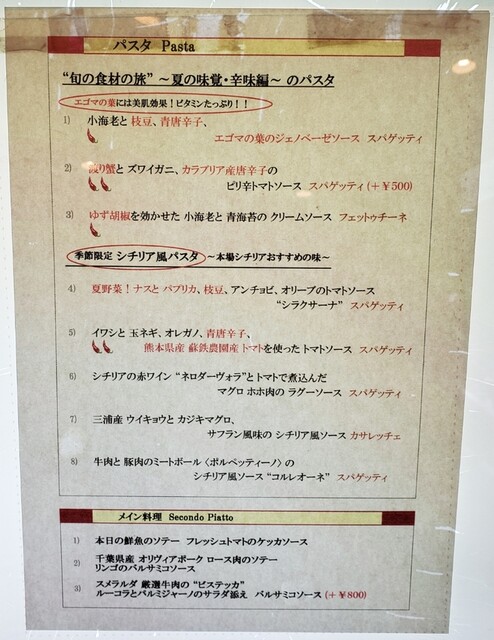 パスタ Pasta
“旬の食材の旅” ～夏の味覚・辛味編～ のパスタ
エゴマの葉には美肌効果！ビタミンたっぷり！！
1) 小海老と 枝豆、青唐辛子、
エゴマの葉のジェノベーゼソース スパゲッティ
2) 渡り蟹と ズワイガニ、カラブリア産唐辛子の
ピリ辛トマトソース スパゲッティ(＋￥500)
3) ゆず胡椒を効かせた 小海老と 青海苔の クリームソース フェットゥチーネ
季節限定 シチリア風パスタ ～本場シチリアおすすめの味～
4) 夏野菜！ナスと パプリカ、枝豆、アンチョビ、オリーブのトマトソース
“シラクサーナ” スパゲッティ
5) イワシと 玉ネギ、オレガノ、青唐辛子、
熊本県産 蘇鉄農園産 トマトを使った トマトソース スパゲッティ
6) シチリアの赤ワイン “ネロダーヴォラ”とトマトで煮込んだ
マグロ ホホ肉の ラグーソース スパゲッティ
7) 三浦産 ウイキョウと カジキマグロ、
サフラン風味の シチリア風ソース カサレッチェ
8) 牛肉と 豚肉のミートボール〈ポルペッティーノ〉の
シチリア風ソース“コルレオーネ” スパゲッティ
メイン料理 Secondo Piatto
1) 本日の鮮魚のソテー フレッシュトマトのケッカソース
2) 千葉県産 オリヴィアポーク ロース肉のソテー
リンゴのバルサミコソース
3) スメラルダ 厳選牛肉の “ビステッカ”
ルーコラとパルミジャーノのサラダ添え バルサミコソース(＋￥800)